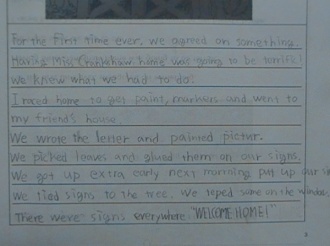 For the first time ever, we agreed on something.
Having Mrs. home was going to be terrific!
We knew what we had to do!
I raced home to get paint, markers and went to
my friend's house.
We wrote the letter and painted pictur.
We picked leaves and glued them on our signs.
We got up extra early next morning put up our
We tied signs to the tree. We teped some on the windows.
There were signs everywhere "WELCOME HOME!"